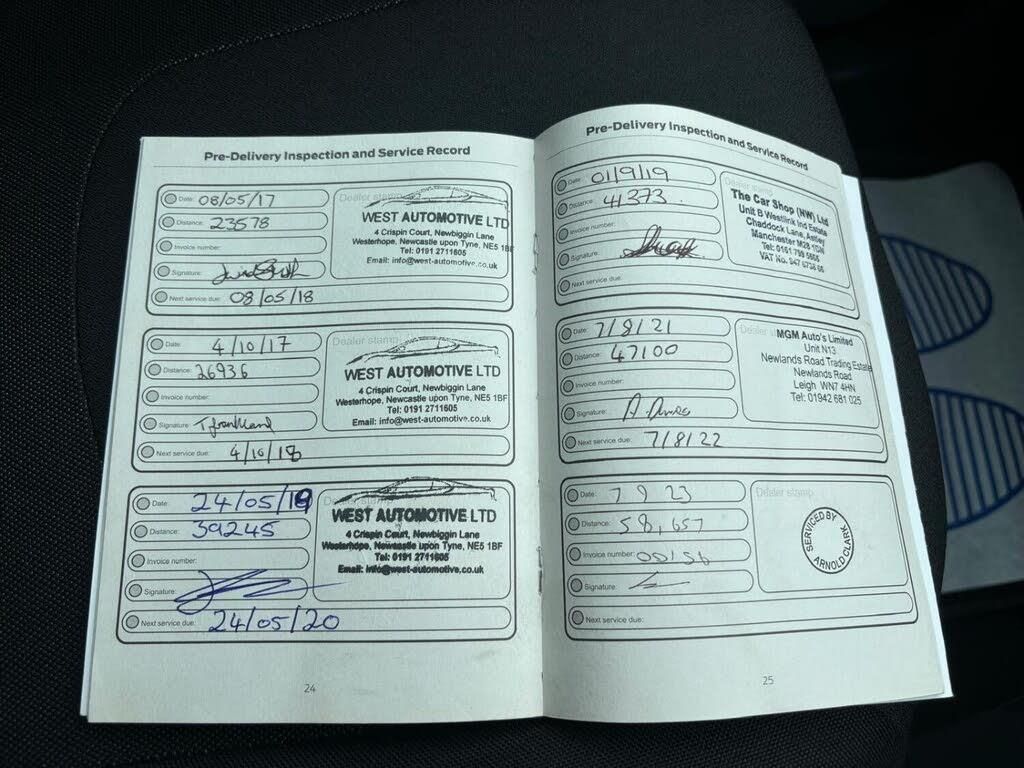 Pre-Delivery Inspection and Service Record
Date: 08/05/17
Distance: 23578
Invoice number:
Signature:
Next service due: 08/05/18
Dealer stamp
WEST AUTOMOTIVE LTD
4 Crispin Court, Newbiggin Lane
Westerhope, Newcastle upon Tyne, NE5 1BF
Tel: 0191 2711605
Email: info@west-automotive.co.uk
Date: 4/10/17
Distance: 26936
Invoice number:
Signature:
Next service due: 4/10/18
Dealer stamp
WEST AUTOMOTIVE LTD
4 Crispin Court, Newbiggin Lane
Westerhope, Newcastle upon Tyne, NE5 1BF
Tel: 0191 2711605
Email: info@west-automotive.co.uk
Date: 24/05/19
Distance: 39245
Invoice number:
Signature:
Next service due: 24/05/20
Dealer stamp
WEST AUTOMOTIVE LTD
4 Crispin Court, Newbiggin Lane
Westerhope, Newcastle upon Tyne, NE5 1BF
Tel: 0191 2711605
Email: info@west-automotive.co.uk
24
Pre-Delivery Inspection and Service Record
Date: 01/9/19
Distance: 41373.
Invoice number:
Signature:
Next service due:
Dealer stamp
The Car Shop (NW) Ltd
Unit B Westlink Ind Estate
Chaddock Lane, Astley
Manchester M28 1CN
Tel: 0161 799 5605
VAT No.
Date: 7/8/21
Distance: 47100
Invoice number:
Signature:
Next service due: 7/8/22
Dealer
MGM Auto's Limited
Unit N13
Newlands Road Trading Estate
Newlands Road
Leigh WN7 4HN
Tel: 01942 681 025
Date: 7 9 23
Distance: 58,657
Invoice number:
Signature:
Next service due:
Dealer stamp
SERVICED BY
ARNOLD CLARK
25